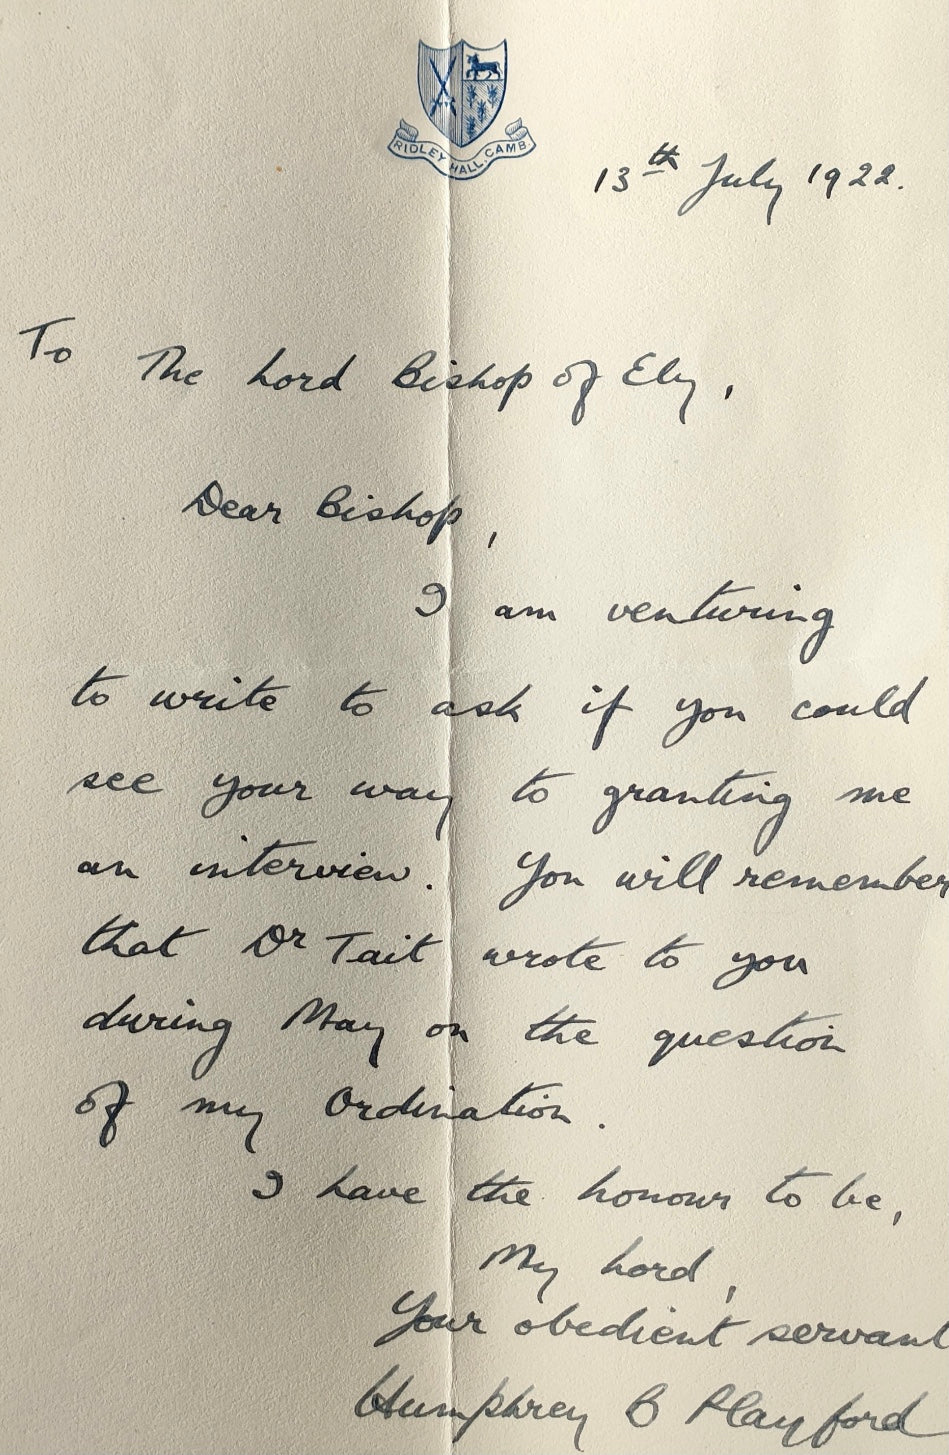 RIDLEY HALL. CAMB.
13th July 1922.
To The Lord Bishop of Ely,
Dear Bishop,
I am venturing
to write to ask if you could
see your way to granting me
an interview. You will remember
that Dr Tait wrote to you
during May on the question
of my Ordination.
I have the honour to be,
My Lord,
Your obedient servant
Humphrey B Playford